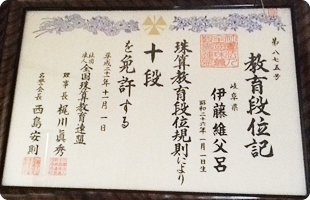 第八七五号
教育段位記
岐阜県
伊藤維父呂
昭和二十六年一月一日生
珠算教育段位規則により
十段
を免許する
平成二十一年十一月一日
社団法人全国珠算教育連盟
理事長 梶川真秀
名誉会長 西島安則